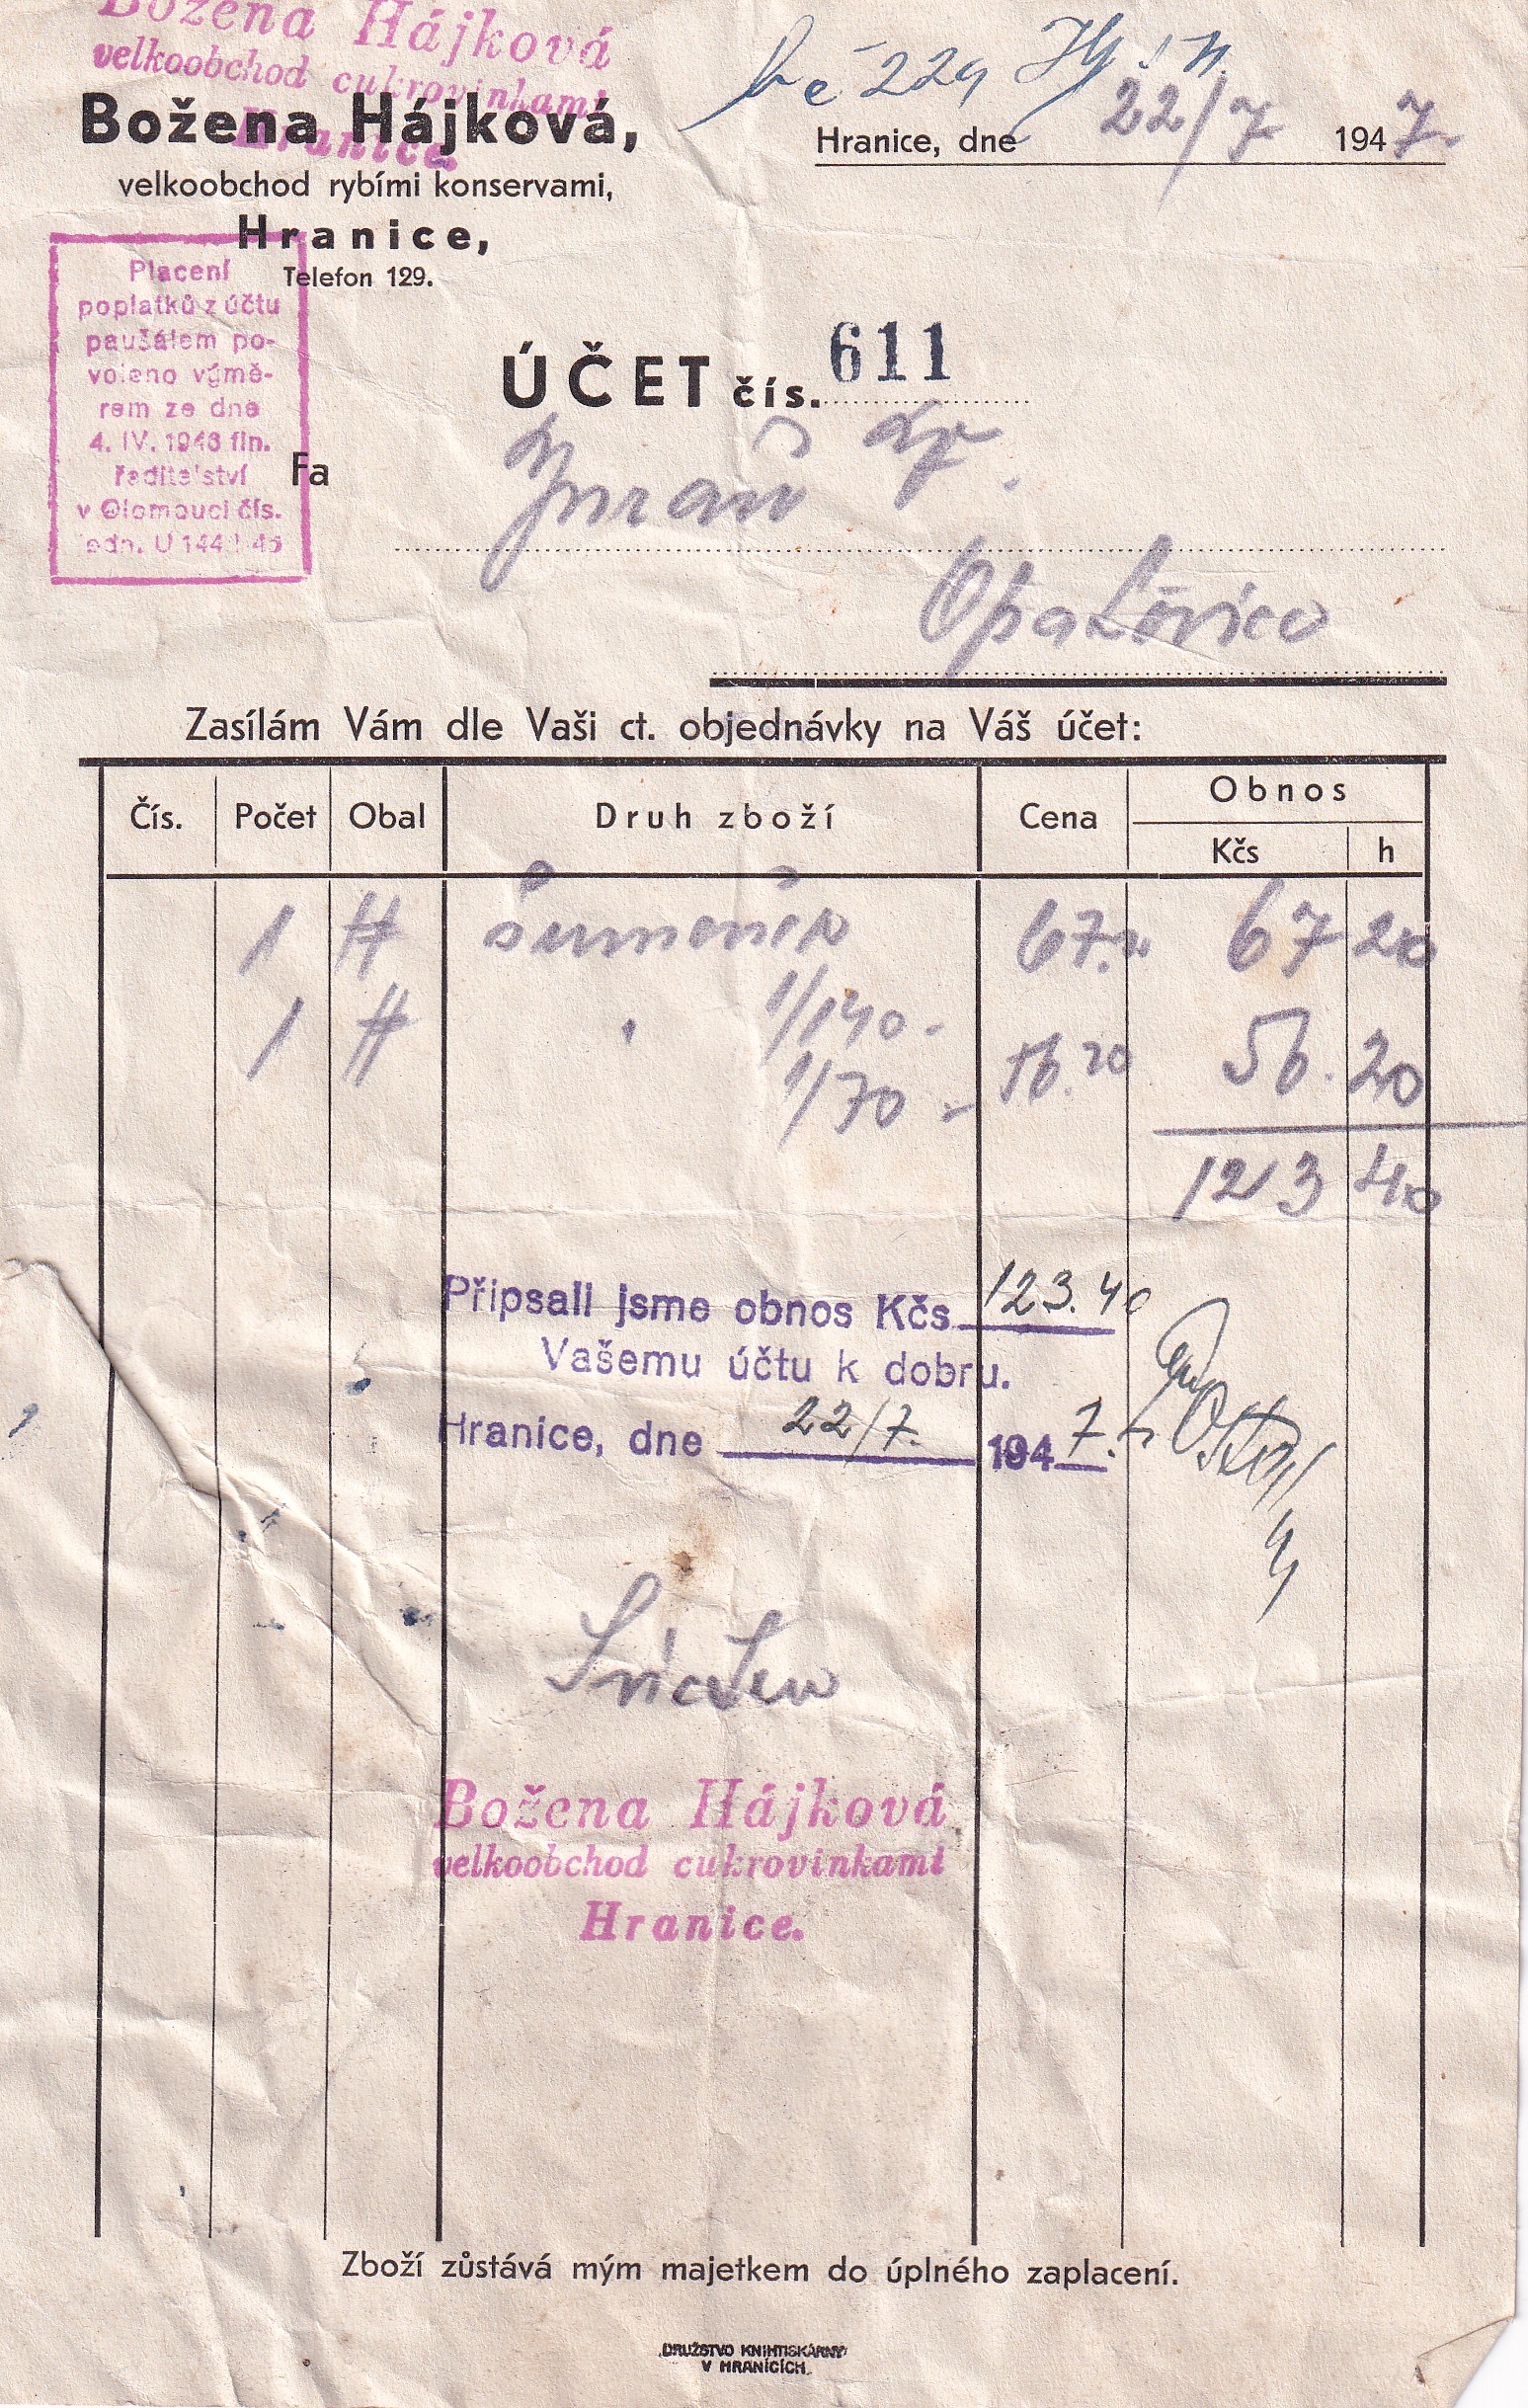 Božena Hájková
velkoobchod cukrovinkami
Hranice.
Božena Hájková,
velkoobchod rybími konservami,
Hranice,
Telefon 129.
229
Hranice, dne 22/7 1947.
Placení
poplatků z účtu
paušálem po-
voleno výmě-
rem ze dne
4. IV. 1946 fin.
ředitelství
v Olomouci čís.
ÚČET čís. 611
Fa
Opatovice
Zasílám Vám dle Vaši ct. objednávky na Váš účet:
Čís. Počet Obal Druh zboží Cena Obnos
Kčs h
1 67 20
1/140.-
1 56.20 56. 20
1/70.-
123 40
Připsali jsme obnos Kčs 123.40
Vašemu účtu k dobru.
Hranice, dne 22/7. 1947.
Božena Hájková
velkoobchod cukrovinkami
Hranice.
Zboží zůstává mým majetkem do úplného zaplacení.
DRUŽSTVO KNIHTISKÁRNY
V HRANICÍCH.